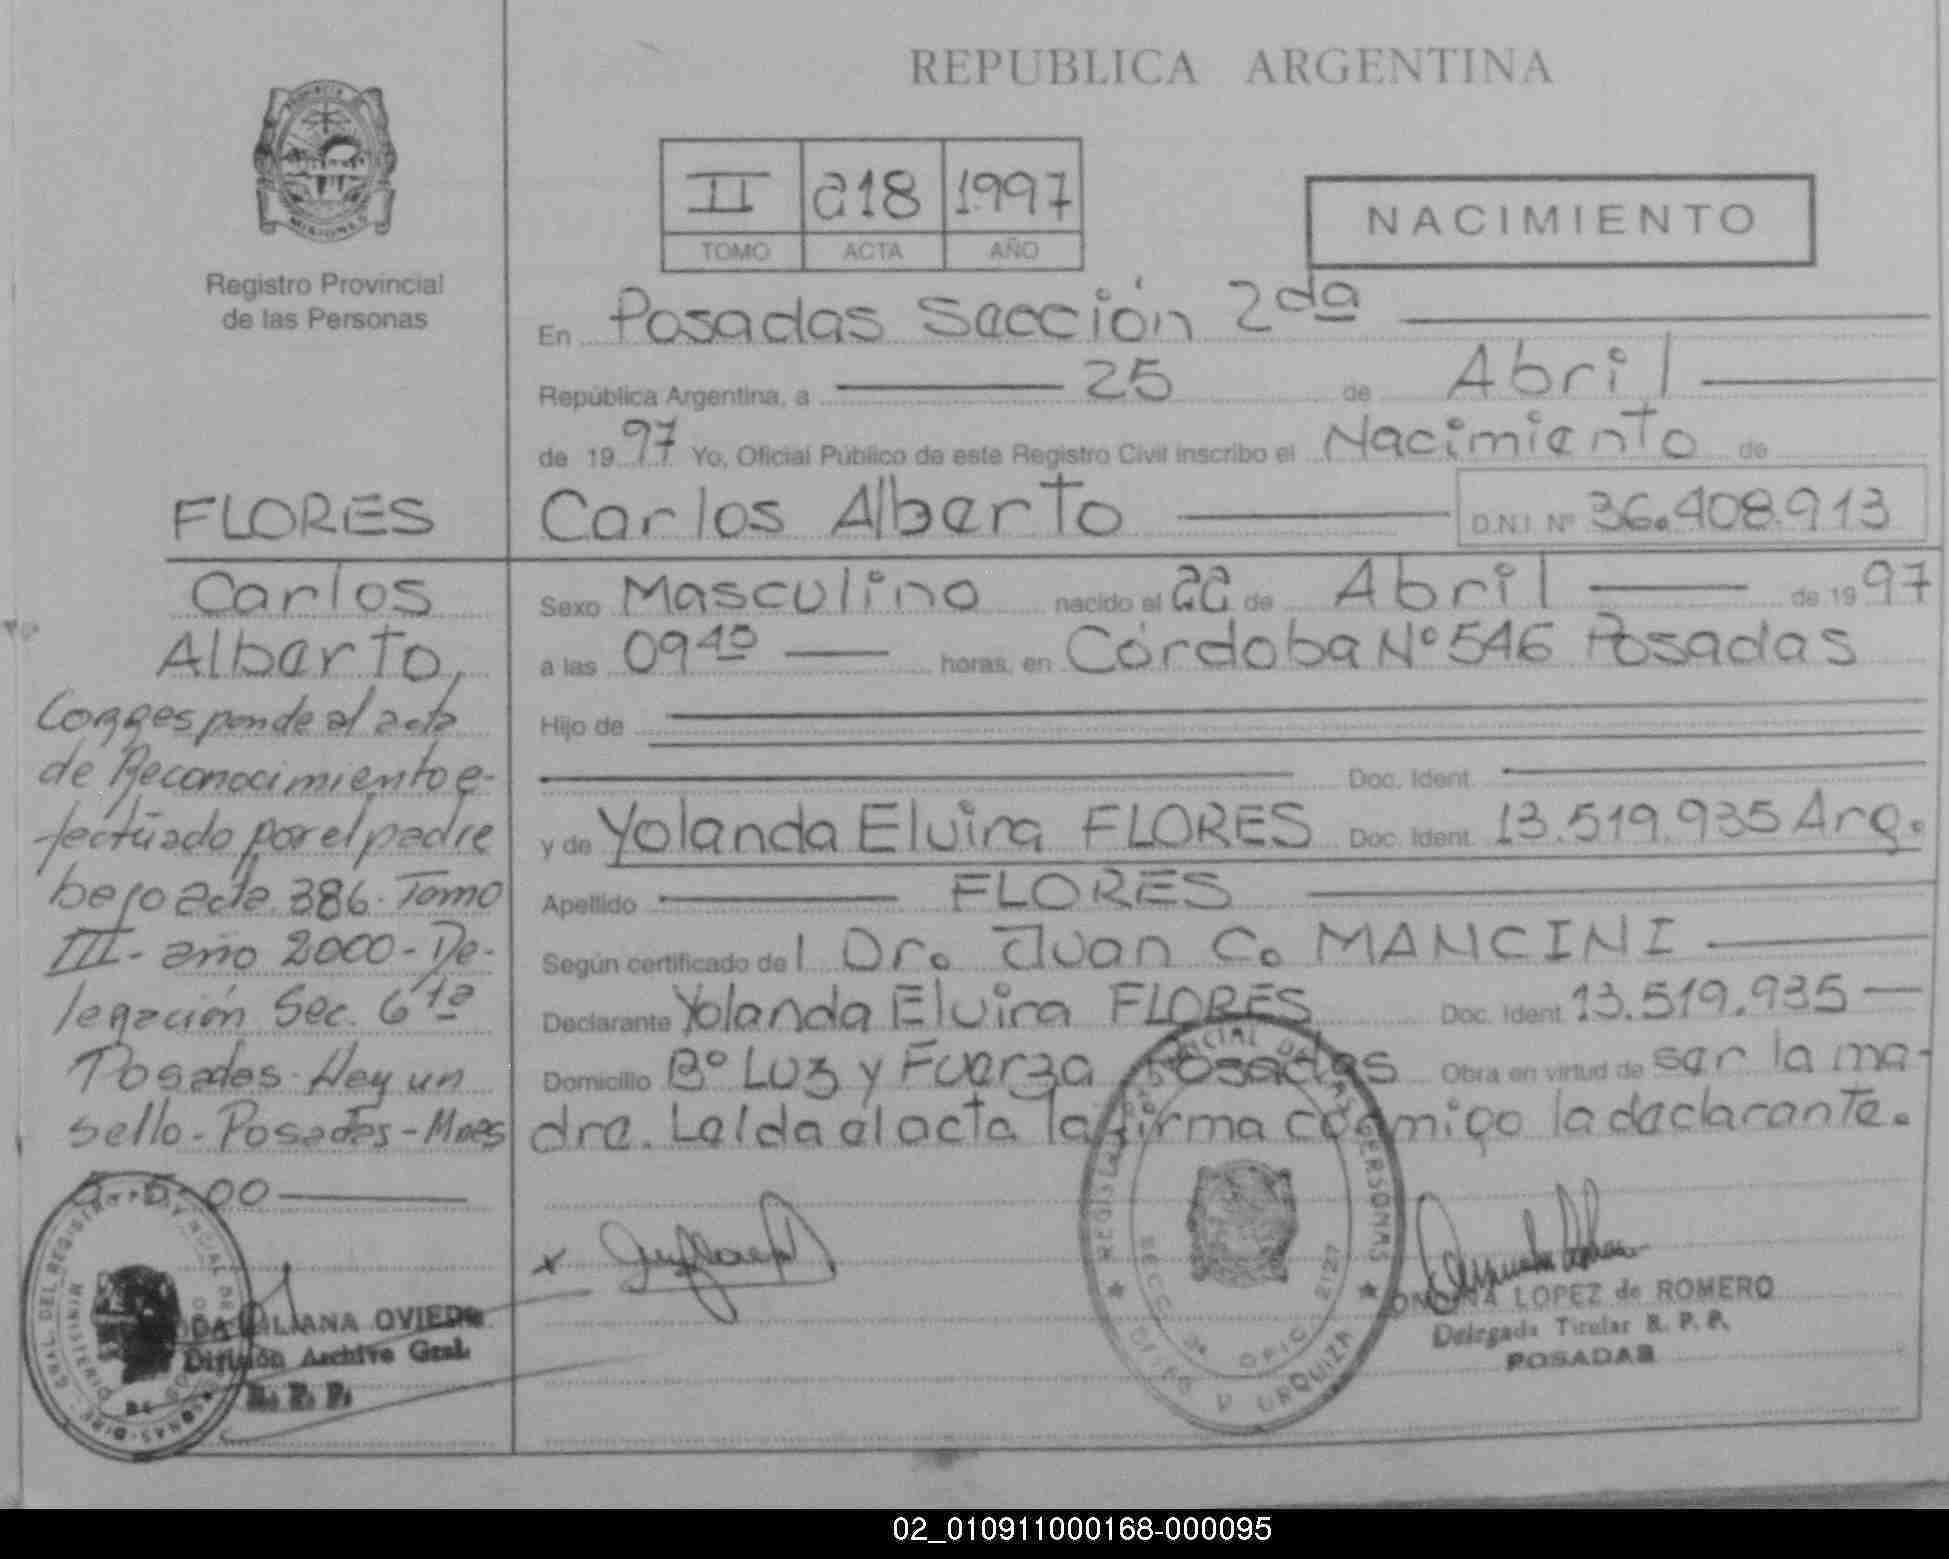 REPUBLICA ARGENTINA
PROVINCIA
MISIONES
Registro Provincial
de las Personas
II 218 1997
TOMO ACTA AÑO
NACIMIENTO
En Posadas Sección 2da
República Argentina, a 25 de Abril
de 1997 Yo, Oficial Público de este Registro Civil inscribo el Nacimiento de
Carlos Alberto D.N.I. Nº 36.408.913
Sexo Masculino nacido el 22 de Abril de 1997
a las 09 40 horas, en Córdoba Nº 546 Posadas
Hijo de
Doc. Ident.
y de Yolanda Elvira FLORES Doc. Ident. 13.519.935 Arg.
Apellido FLORES
Según certificado del Dr. Juan C. MANCINI
Declarante Yolanda Elvira FLORES Doc. Ident. 13.519.935
Domicilio Bº Luz y Fuerza Posadas Obra en virtud de ser la ma-
dre. Leída el acta la firma conmigo la declarante.
FLORES
Carlos
Alberto
Corresponde al acta
de Reconocimiento e-
fectuado por el padre
bajo acta 386. Tomo
III- año 2000- De-
legación Sec. 6ta
Posadas- Hay un
sello- Posadas- Mnes
LILIANA OVIEDO
División Archivo Gral.
R. P. P.
REGISTRO PROVINCIAL DE LAS PERSONAS
URQUIZA
LOPEZ de ROMERO
Delegada Titular R. P. P.
POSADAS
02_010911000168-000095